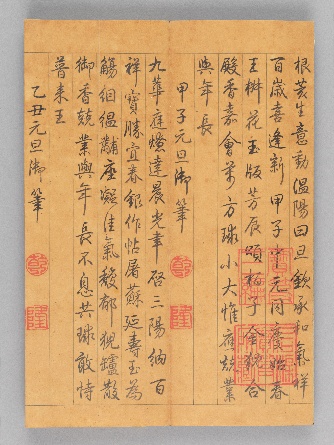 根荄生意動溫陽旦欽承和氣祥
百歲喜逢新甲子
元同慶始春
王
花玉版芳辰頌
子金猊合
殿香嘉會萬方球小大惟應兢業
與年長
甲子元旦御筆
九華庭燎達晨光聿啓三陽納百
祥寶勝宜春銀作帖屠蘇延壽玉為
觴絪縕黼座凝佳氣馥郁猊罏散
御香兢業與年長不息共球敢恃
普來王
乙丑元旦御筆